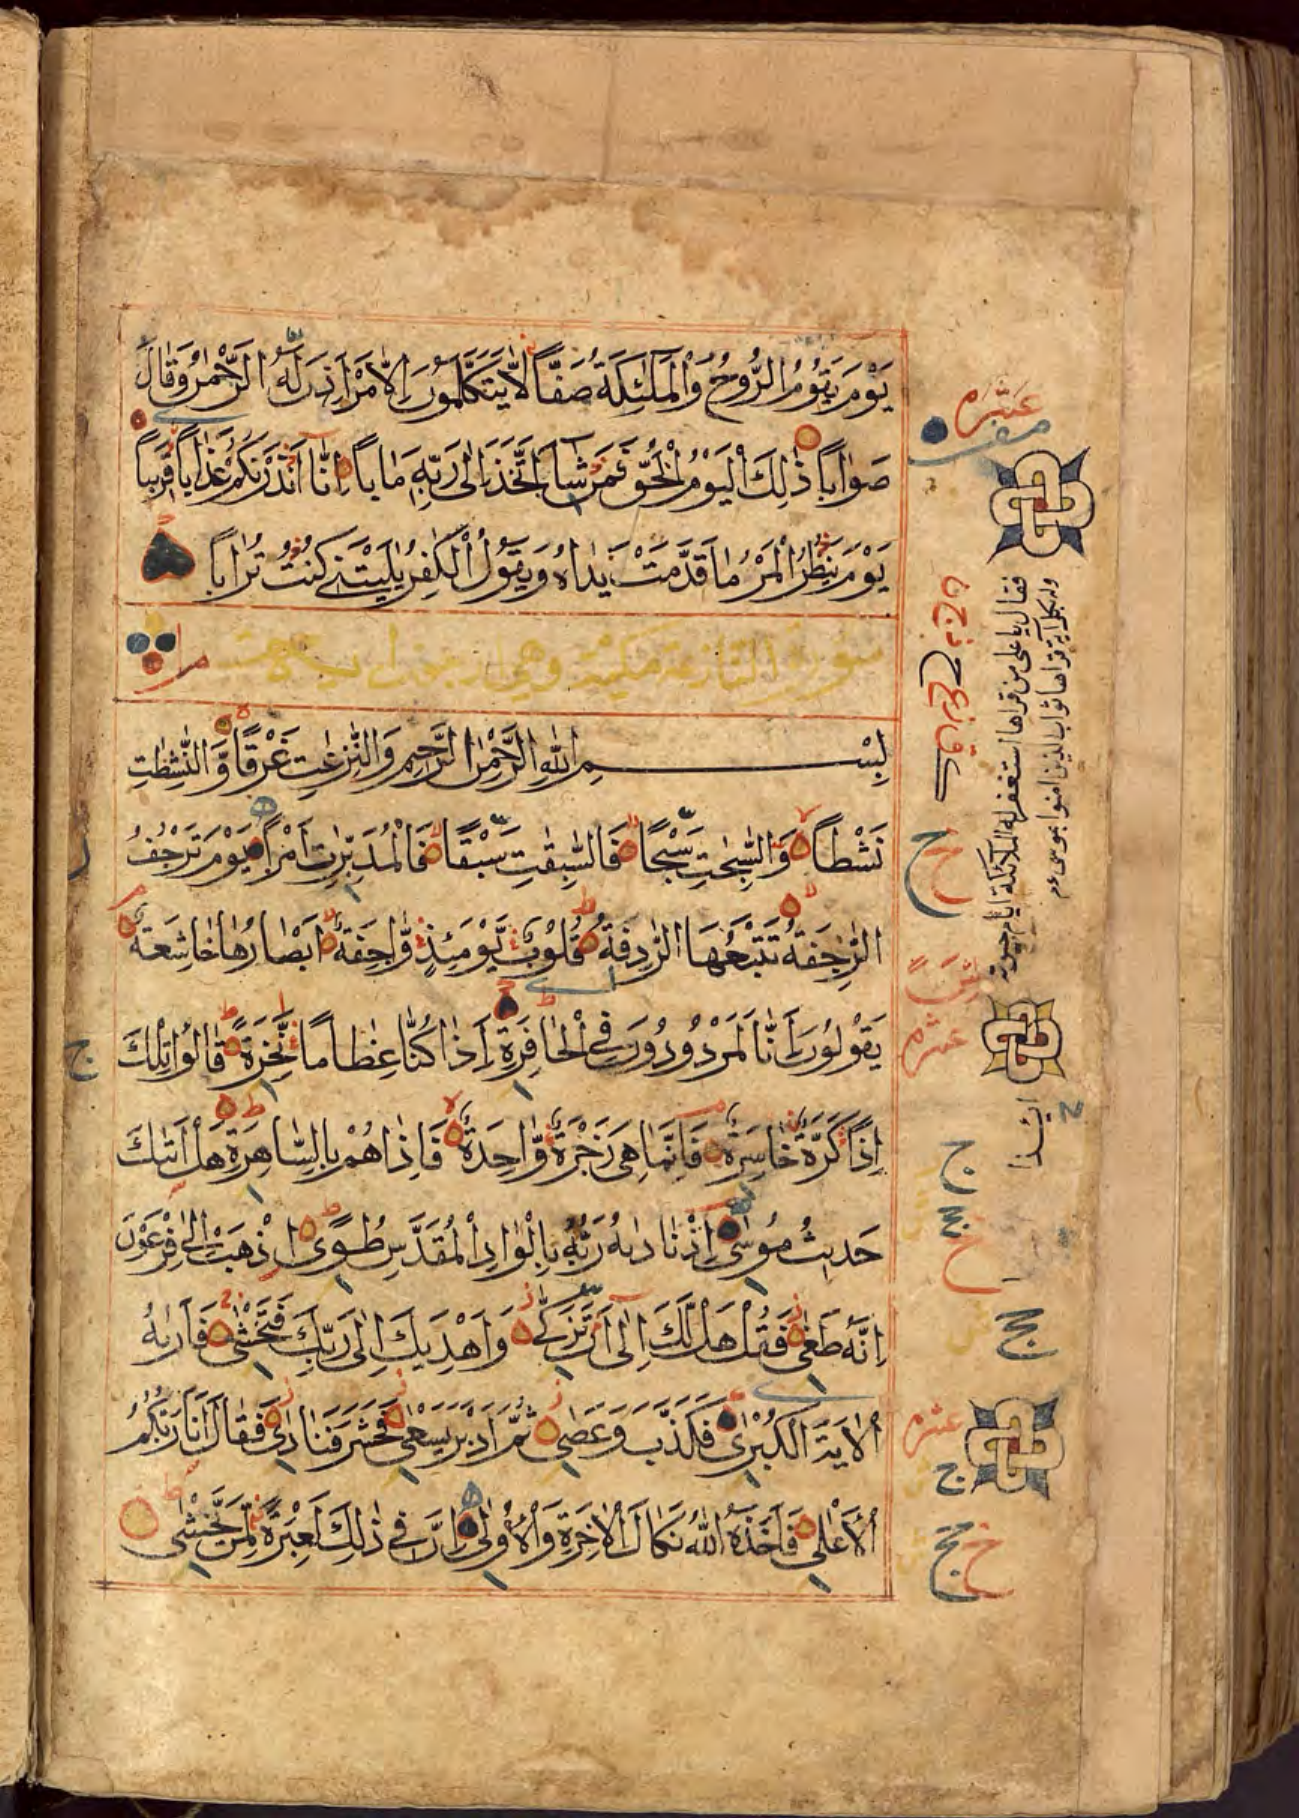 يَوْمَ يَقُومُ الرُّوحُ وَالْمَلٰئِكَةُ صَفًّا لَا يَتَكَلَّمُونَ اِلَّا مَنْ اَذِنَ لَهُ الرَّحْمٰنُ وَقَالَ
صَوَابًا ذٰلِكَ الْيَوْمُ الْحَقُّ فَمَنْ شَاءَ اتَّخَذَ اِلٰى رَبِّهٖ مَاٰبًا اِنَّا اَنْذَرْنٰكُمْ عَذَابًا قَرِيبًا
يَوْمَ يَنْظُرُ الْمَرْءُ مَا قَدَّمَتْ يَدَاهُ وَيَقُولُ الْكٰفِرُ يٰلَيْتَنِي كُنْتُ تُرَابًا
سورة النازعة مكية وهي اربعون
بِسْمِ اللّٰهِ الرَّحْمٰنِ الرَّحِيمِ وَالنّٰزِعٰتِ غَرْقًا وَّالنّٰشِطٰتِ
نَشْطًا وَّالسّٰبِحٰتِ سَبْحًا فَالسّٰبِقٰتِ سَبْقًا فَالْمُدَبِّرٰتِ اَمْرًا يَوْمَ تَرْجُفُ
الرَّاجِفَةُ تَتْبَعُهَا الرَّادِفَةُ قُلُوبٌ يَّوْمَئِذٍ وَّاجِفَةٌ اَبْصَارُهَا خَاشِعَةٌ
يَقُولُونَ ءَاِنَّا لَمَرْدُودُونَ فِي الْحَافِرَةِ ءَاِذَا كُنَّا عِظَامًا نَّخِرَةً قَالُوا تِلْكَ
اِذًا كَرَّةٌ خَاسِرَةٌ فَاِنَّمَا هِيَ زَجْرَةٌ وَّاحِدَةٌ فَاِذَا هُمْ بِالسَّاهِرَةِ هَلْ اَتٰىكَ
حَدِيثُ مُوسٰى اِذْ نَادٰىهُ رَبُّهُ بِالْوَادِ الْمُقَدَّسِ طُوًى اِذْهَبْ اِلٰى فِرْعَوْنَ
اِنَّهُ طَغٰى فَقُلْ هَلْ لَّكَ اِلٰى اَنْ تَزَكّٰى وَاَهْدِيَكَ اِلٰى رَبِّكَ فَتَخْشٰى فَاَرٰىهُ
الْاٰيَةَ الْكُبْرٰى فَكَذَّبَ وَعَصٰى ثُمَّ اَدْبَرَ يَسْعٰى فَحَشَرَ فَنَادٰى فَقَالَ اَنَا رَبُّكُمُ
الْاَعْلٰى فَاَخَذَهُ اللّٰهُ نَكَالَ الْاٰخِرَةِ وَالْاُولٰى اِنَّ فِي ذٰلِكَ لَعِبْرَةً لِّمَنْ يَّخْشٰى
عشره
فقال يا علي من قراها استغفر له الملائكة ايام حيوته
وله بكل آية قراها ثواب الذين امنوا بموسى ع م
عشره
عشره